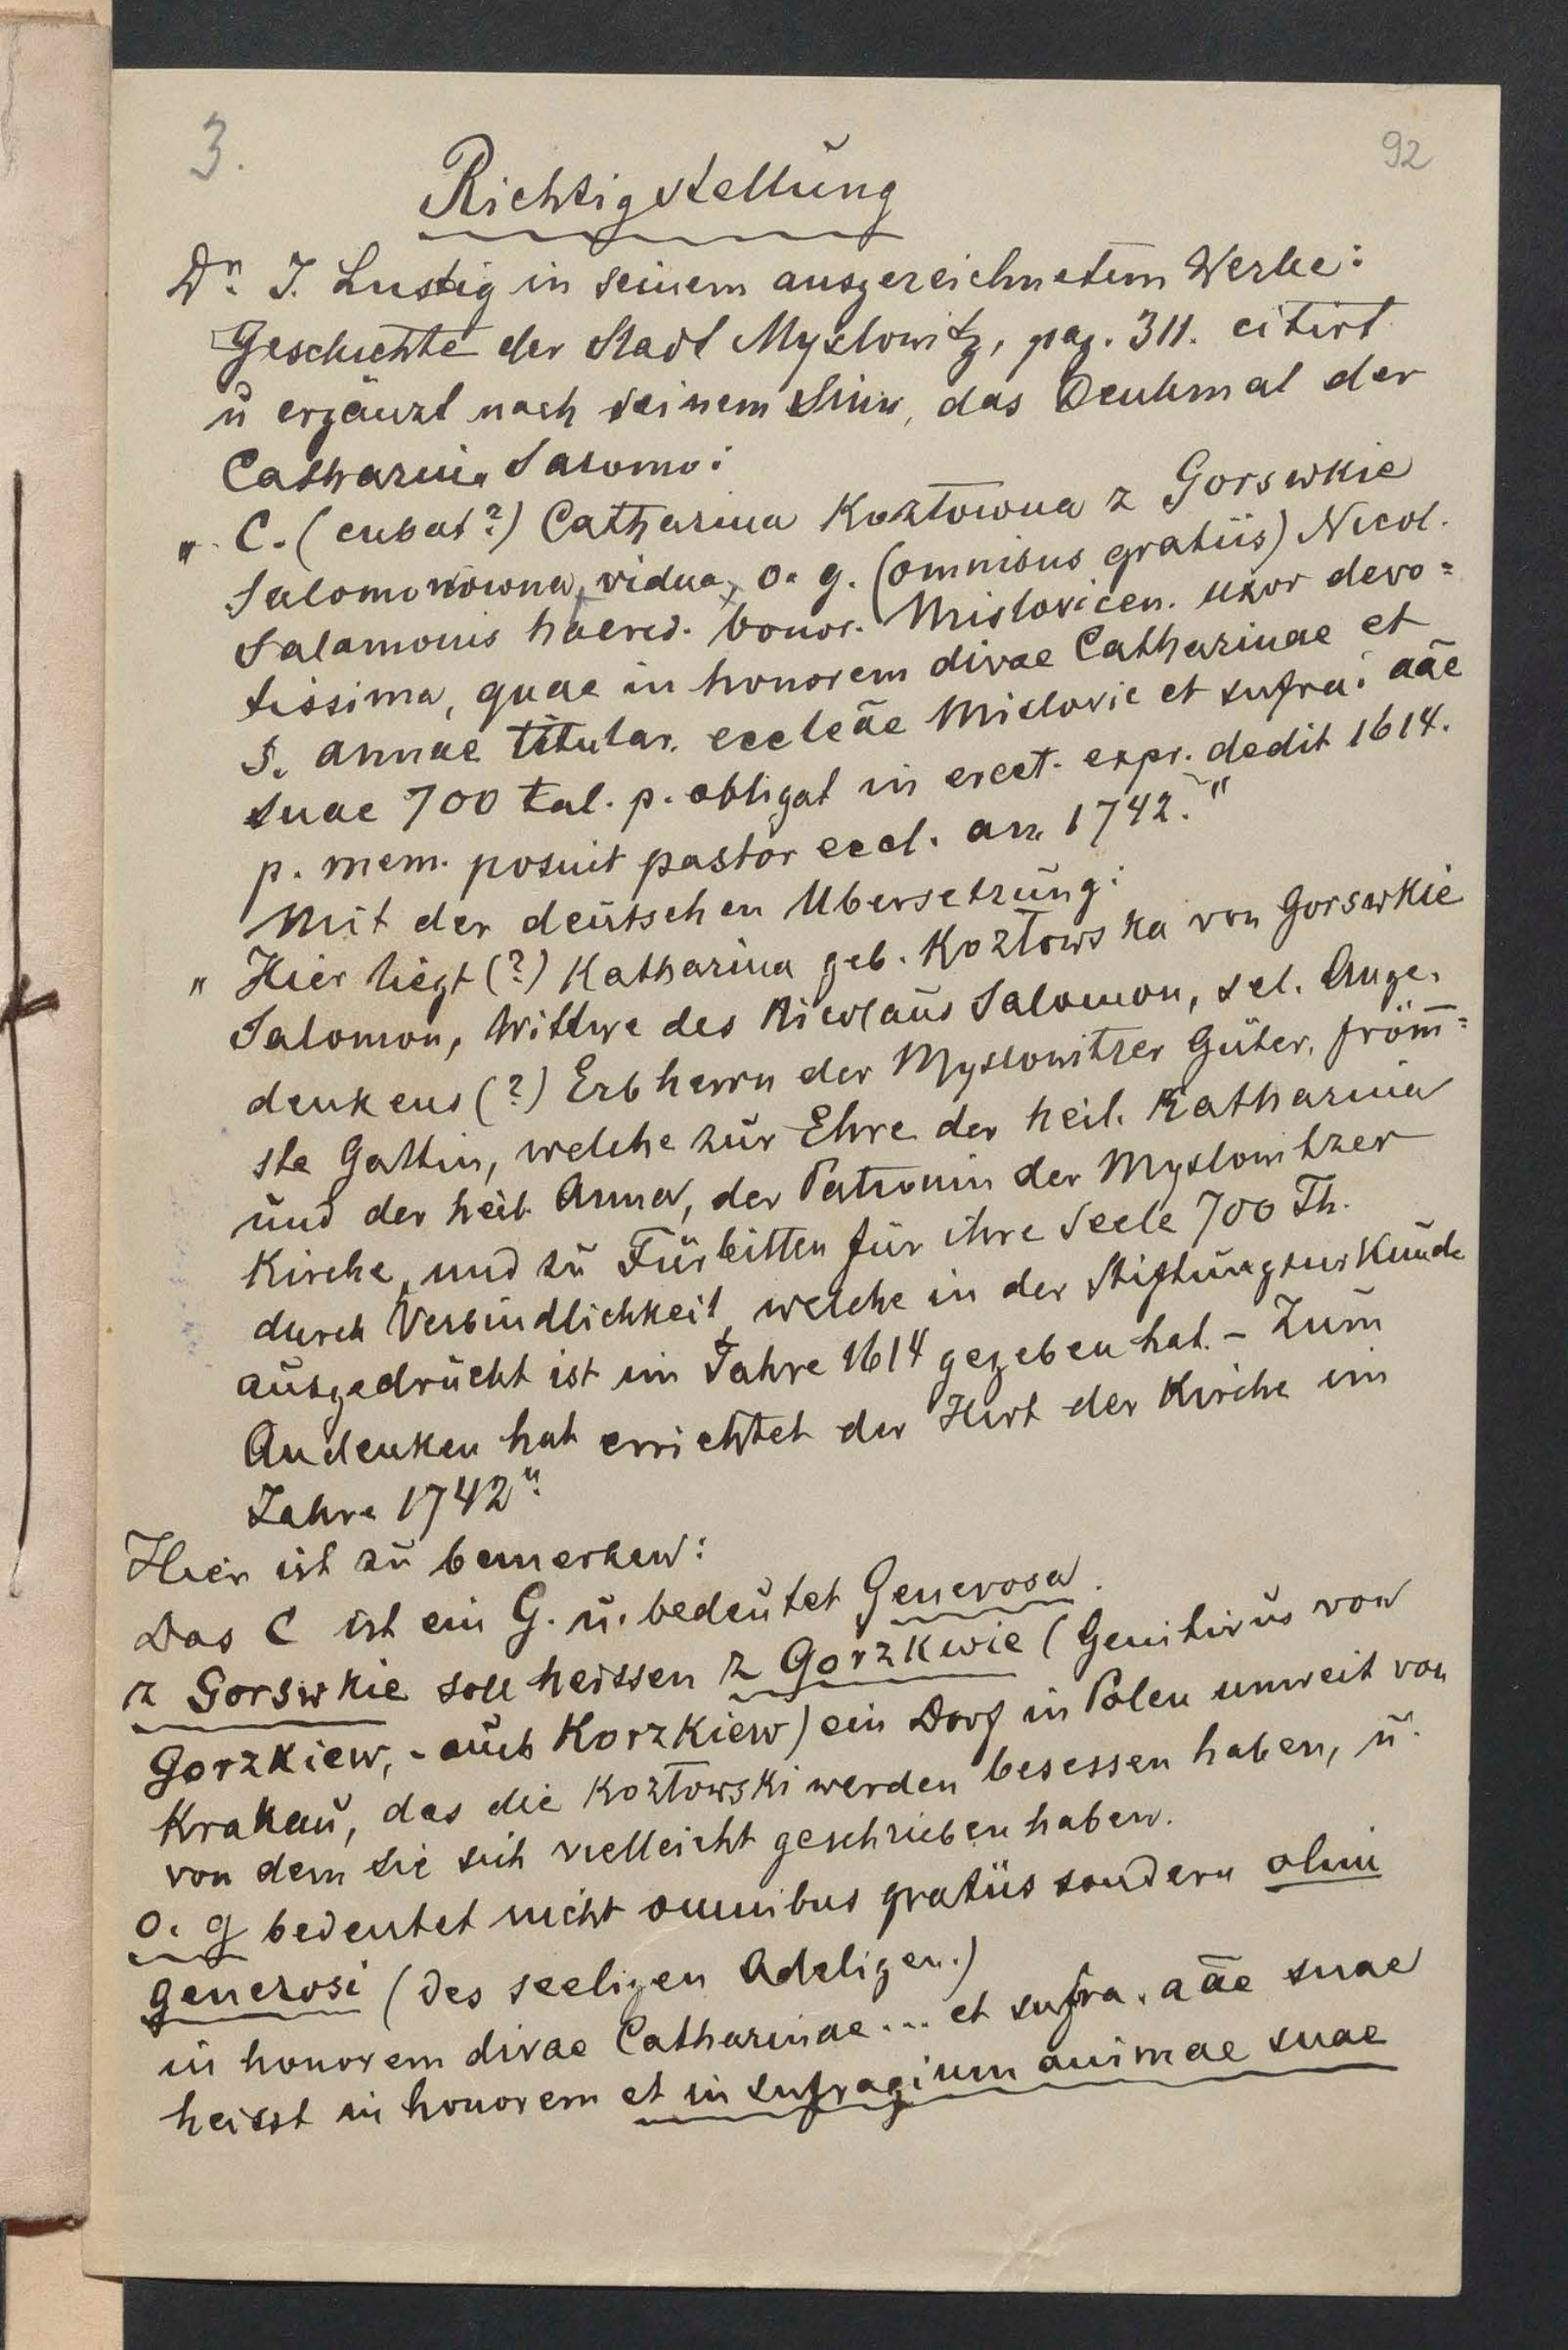 3.
92
Richtigstellung
Dr. J. Lustig in seinem ausgezeichnetem Werke:
Geschichte der Stadt Myslowitz, pag. 311. citirt
u ergänzt nach seinem Sinn, das Denkmal der
Catharina Salomo:
„ C. (cubat?) Catharina Kozłowna z Gorswkie
Salomonowna, vidua, o. g. (omnibus gratiis) Nicol.
Salamonis haered. bonor. Mislovicen. uxor devo=
tissima, quae in honorem divae Catharinae et
S. annae titular. eccleāe Mislovic et sufra: aāe
suae 700 tal. p. obligat in erect. expr. dedit 1614.
p. mem. posuit pastor eccl. an. 1742."
Mit der deutschen Ubersetzung:
„ Hier liegt (?) Katharina geb. Kozłowska von Gorswkie
Salomon, Wittwe des Nicolaus Salomon, sel. Ange.
denkens (?) Erbherrn der Myslowitzer Güter, from̄=
ste Gattin, welche zur Ehre der heil. Katharina
und der heil. Anna, der Patronin der Myslowitzer
Kirche, und zu Fürbitten für ihre Seele 700 Th.
durch Verbindlichkeit, welche in der Stiftungsurkunde
ausgedrückt ist im Jahre 1614 gegeben hat. – Zum
Andenken hat errichtet der Hirt der Kirche im
Jahre 1742"
Hier ist zu bemerken:
Das C ist ein G. u. bedeutet Generosa.
z Gorswkie soll heissen z Gorzkwie (Genitivus von
Gorzkiew, - auch Korzkiew) ein Dorf in Polen unweit von
Krakau, das die Kozłowski werden besessen haben, u.
von dem sie sich vielleicht geschrieben haben.
o. g bedeutet nicht omnibus gratiis sondern olim
generosi (des seeligen Adeligen.)
in honorem divae Catharinae ... et sufra. aāe suae
heisst in honorem et in sufragium animae suae